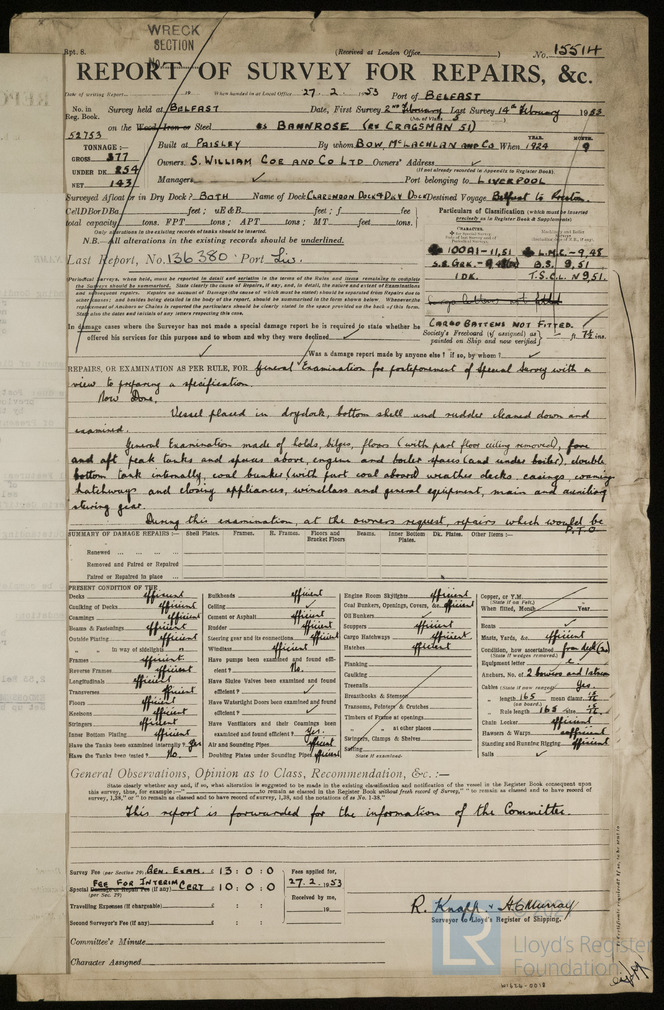 WRECK
SECTION
No.
Rpt. 8.
(Received at London Office
No. 15514
REPORT OF SURVEY FOR REPAIRS, &c.
Date of writing Report 19 When handed in at Local Office 27. 2. 1953 Port of BELFAST
No. in Reg. Book. Survey held at BELFAST Date, First Survey 2nd February Last Survey 14th February 1953
(No. of Visits 5
52753 on the Wood, Iron or Steel BANNROSE (ex CRAGSMAN 51)
TONNAGE:— Built at PAISLEY By whom BOW, McLACHLAN and Co. When 1924 9
YEAR. MONTH.
GROSS 377
UNDER DK 254
NET 143
Owners S. WILLIAM COE AND CO LTD Owners' Address
(If not already recorded in Appendix to Register Book.)
Managers Port belonging to LIVERPOOL
Surveyed Afloat or in Dry Dock? BOTH Name of Dock CLARENDON DOCK & DRY DOCK Destined Voyage Belfast to Preston.
Cell DB or DBa feet; uE&B feet; f feet
total capacity tons. FPT tons; APT tons; MT feet tons.
Only alterations in the existing records of tanks should be inserted.
N.B.—All alterations in the existing records should be underlined.
Last Report, No. 136380 Port Liv.
Particulars of Classification (which must be inserted precisely as in Register Book & Supplements)
100A1-11,51 L.M.C.-9,48
B.S. 9,51
1DK. T.S.C.L N 9,51.
CARGO BATTENS NOT FITTED.
Society's Freeboard (if assigned) as painted on Ship and now verified } ft. 7½ ins.
Periodical Surveys, when held, must be reported in detail and seriatim in the terms of the Rules and items remaining to complete the Surveys should be summarised.
In damage cases where the Surveyor has not made a special damage report he is required to state whether he offered his services for this purpose and to whom and why they were declined
Was a damage report made by anyone else? if so, by whom?
REPAIRS, OR EXAMINATION AS PER RULE, FOR General Examination for postponement of Special Survey with a
view to preparing a specification.
Now Done.
Vessel placed in drydock, bottom shell and rudder cleaned down and
examined.
General Examination made of holds, bilges, floors (with part floor ceiling removed), fore
and aft peak tanks and spaces above, engine and boiler spaces (and under boiler), double
bottom tank internally, coal bunker (with part coal aboard) weather decks, casings, coamings
hatchways and closing appliances, windlass and general equipment, main and auxiliary
steering gear.
During this examination, at the owners request, repairs which would be
P.T.O
SUMMARY OF DAMAGE REPAIRS:— Shell Plates. Frames. R. Frames. Floors and Bracket Floors Beams. Inner Bottom Plates. Dk. Plates. Other Items:—
Renewed
Removed and Faired or Repaired
Faired or Repaired in place
PRESENT CONDITION OF THE
Decks efficient
Caulking of Decks efficient
Coamings efficient
Beams & Fastenings efficient
Outside Plating efficient
" " in way of sidelights "
Frames efficient
Reverse Frames efficient
Longitudinals efficient
Transverses efficient
Floors efficient
Keelsons efficient
Stringers efficient
Inner Bottom Plating efficient
Have the Tanks been examined internally? Yes
Have the Tanks been tested? No.
Bulkheads efficient
Ceiling
Cement or Asphalt efficient
Rudder efficient
Steering gear and its connections efficient
Windlass efficient
Have pumps been examined and found efficient? No.
Have Sluice Valves been examined and found efficient?
Have Watertight Doors been examined and found efficient?
Have Ventilators and their Coamings been examined and found efficient? Yes.
Air and Sounding Pipes efficient
Doubling Plates under Sounding Pipes efficient
Engine Room Skylights efficient
Coal Bunkers, Openings, Covers, &c. efficient
Oil Bunkers
Scuppers efficient
Cargo Hatchways efficient
Hatches efficient
Planking
Caulking
Treenails
Breasthooks & Stemson
Transoms, Pointers & Crutches
Timbers of Frame at openings
" " at other places
Stringers, Clamps & Shelves
Salting
State if examined.
Copper, or Y.M.
(State if on Felt.)
When fitted, Month Year
Boats
Masts, Yards, &c. efficient
Condition, how ascertained from deck (s)
(State if wedges removed.)
Equipment letter
Anchors, No. of 2 bowers and 1 stream
Cables (State if now ranged) Yes.
" length 165 mean diam.
(on board.)
Rule length 165 size
Chain Locker efficient
Hawsers & Warps sufficient
Standing and Running Rigging efficient
Sails
General Observations, Opinion as to Class, Recommendation, &c.:—
State clearly whether any, and if so, what alteration is suggested to be made in the existing classification and notification of the vessel in the Register Book consequent upon
This report is forwarded for the information of the Committee.
Survey Fee (per Section 29) GEN. EXAM. £ 13 : 0 : 0
FEE FOR INTERIM
Special Damage or Repair Fee (if any) CERT £ 10 : 0 : 0
(per Sec. 29)
Travelling Expenses (if chargeable) £
Second Surveyor's Fee (if any) £
Fees applied for,
27. 2. 1953
Received by me,
19
R. Knapp. A.G. Murray
Surveyor to Lloyd's Register of Shipping.
Committee's Minute
Character Assigned
LR
Lloyd's Register
Foundation
W1626-0018